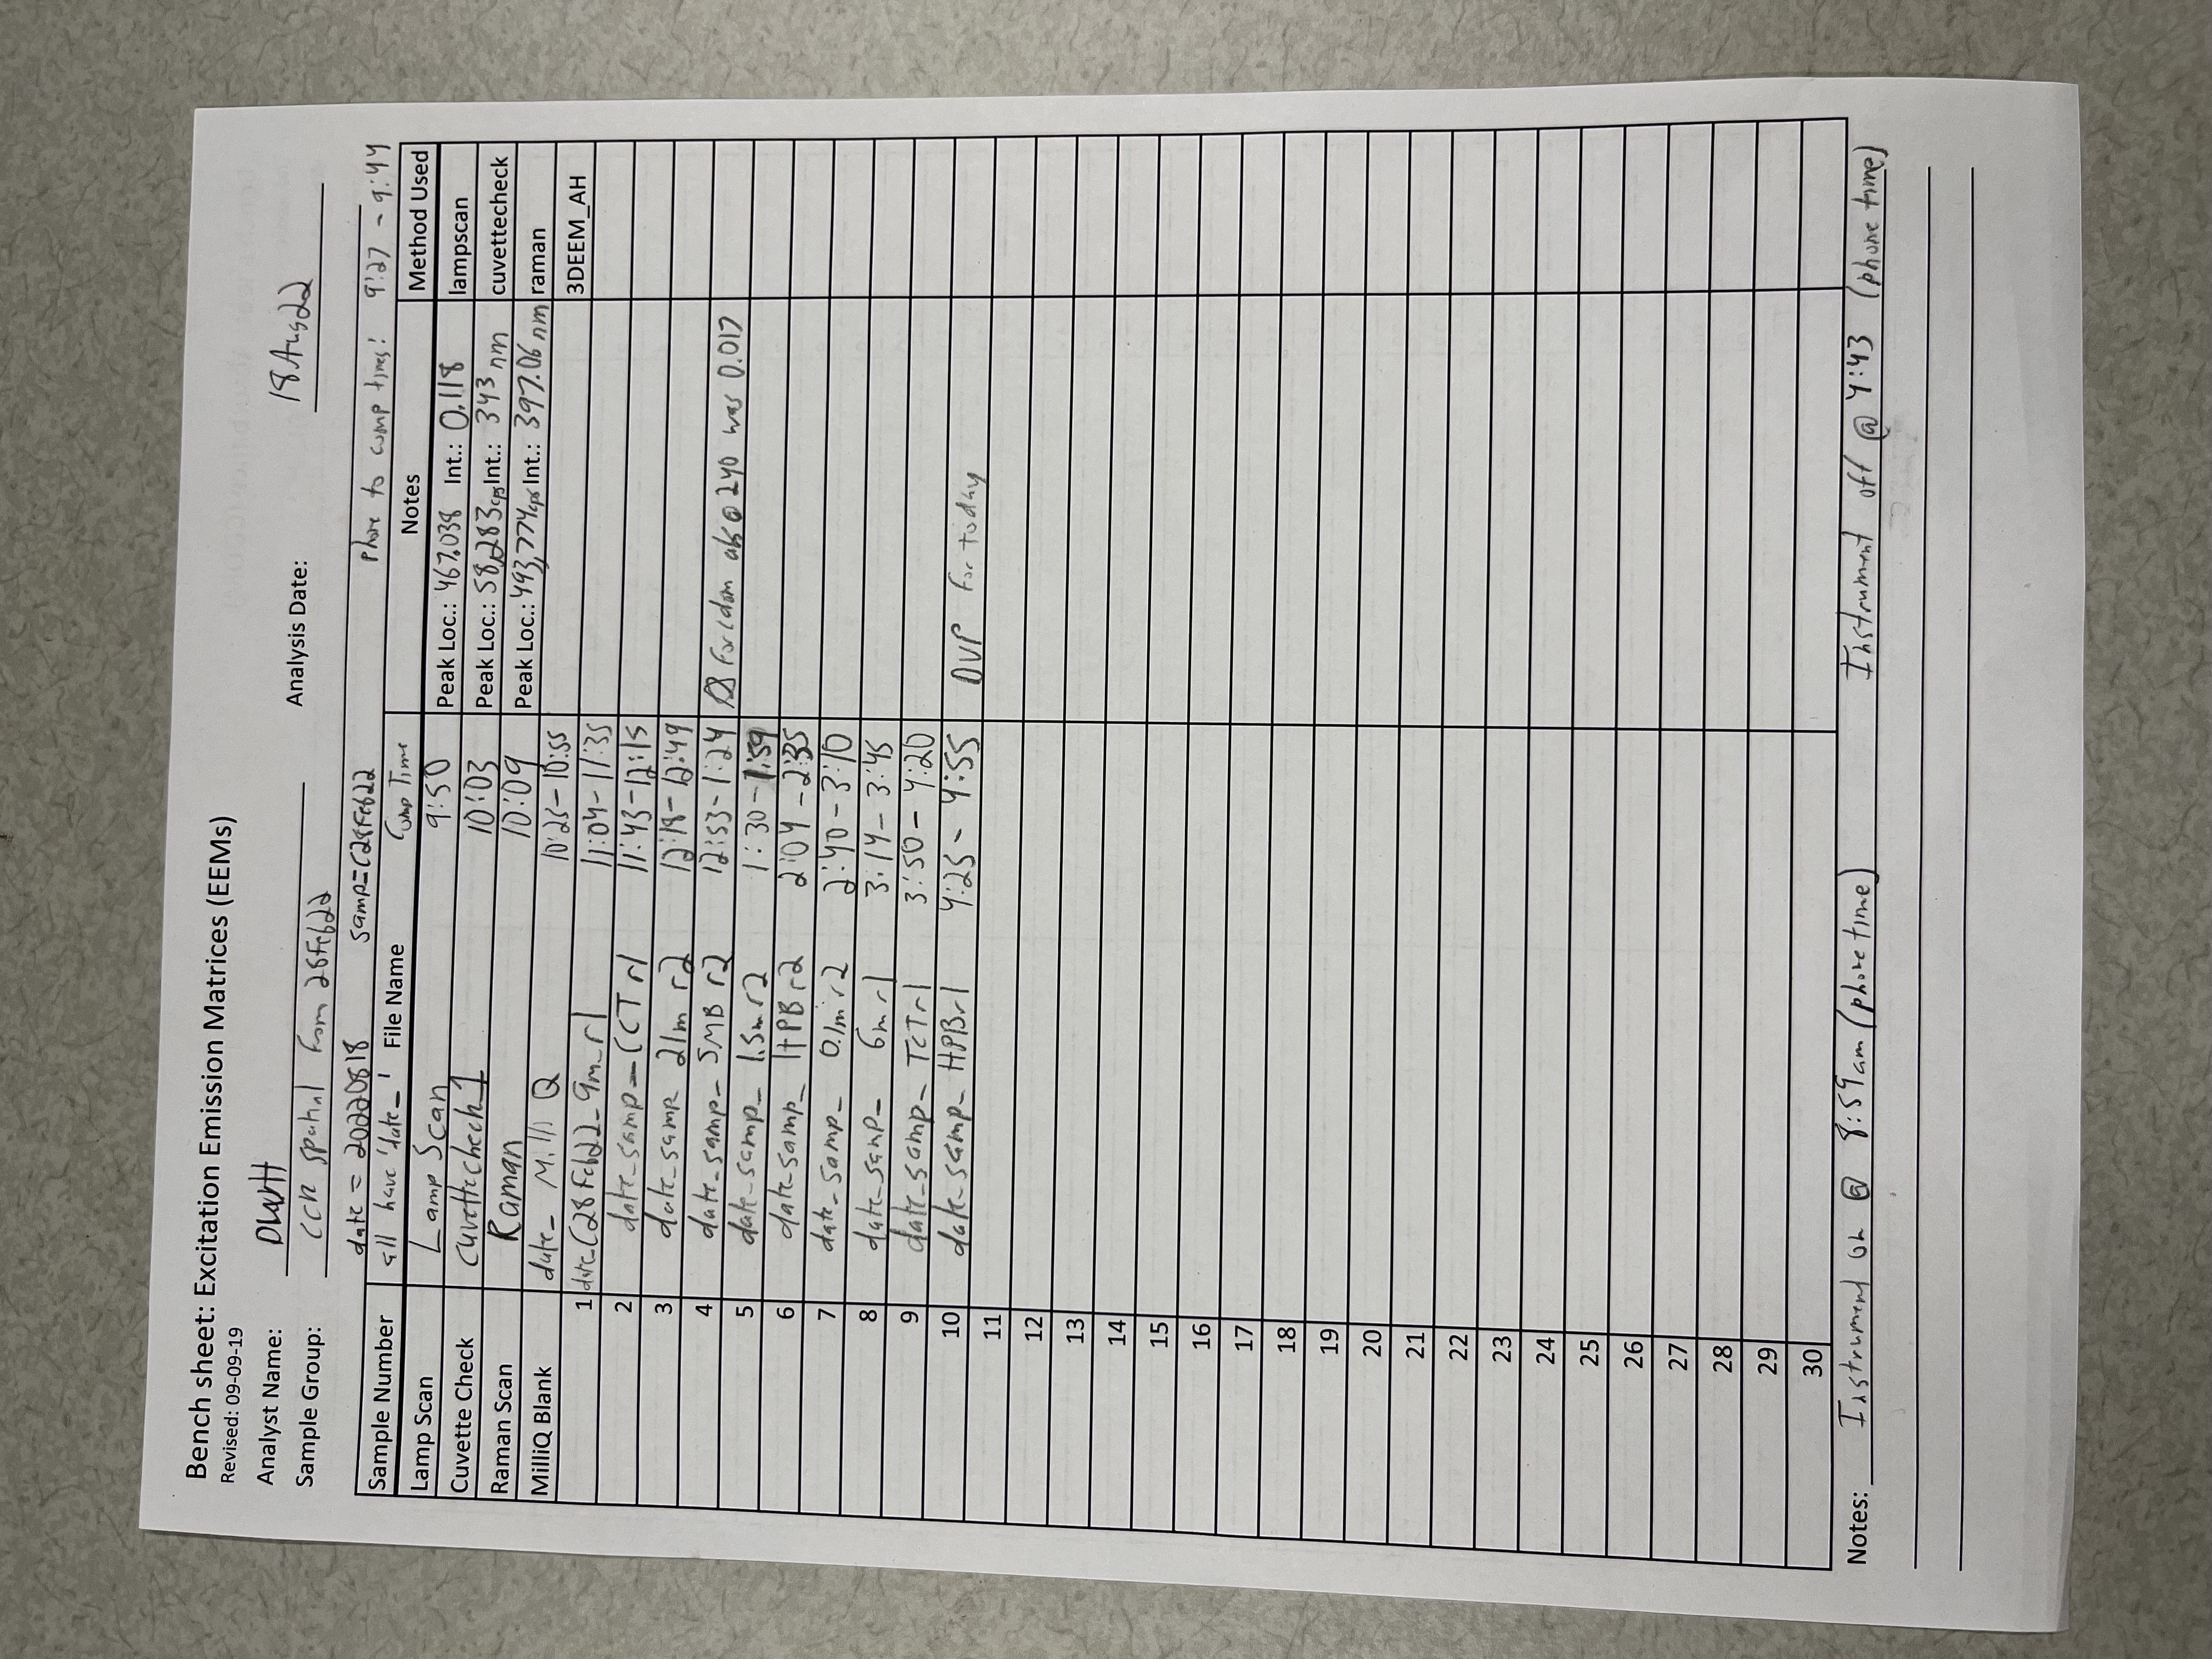 Bench sheet: Excitation Emission Matrices (EEMs)
Revised: 09-09-19
Analyst Name: DWH
Analysis Date: 18Aug22
Sample Group: CCR spatial from 28Feb22
date = 20220818 samp=C28Feb22 phone to comp times! 9:27 - 9:44
Sample Number all have 'date_' File Name Comp Time Notes Method Used
Lamp Scan Lamp Scan 9:50 Peak Loc.: 467.038 Int.: 0.118 lampscan
Cuvette Check cuvettecheck1 10:03 Peak Loc.: 58,283cps Int.: 343 nm cuvettecheck
Raman Scan Raman 10:09 Peak Loc.: 493,774cps Int.: 397.06 nm raman
MilliQ Blank date_ MilliQ 10:25-10:55 3DEEM_AH
1 date_C28Feb22_9m_r1 11:04-11:35
2 date_samp_CCTr1 11:43-12:15
3 date_samp 21m r2 12:18-12:49
4 date_samp_ SMB r2 12:53-1:24 for cdom abs @ 240 was 0.017
5 date_samp_ 1.5m r2 1:30-1:59
6 date_samp_ HPB r2 2:04-2:35
7 date_samp_ 0.1m r2 2:40-3:10
8 date_samp_ 6m r1 3:14-3:45
9 date_samp_ TCTr1 3:50-4:20
10 date_samp_ HPBr1 4:25-4:55 for today
11
12
13
14
15
16
17
18
19
20
21
22
23
24
25
26
27
28
29
30
Notes: Instrument on @ 8:59am (phone time) Instrument off @ 4:43 (phone time)